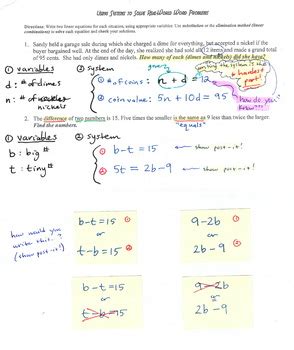 Using Systems to Solve Real-World Word Problems
Directions. Write two linear equations for each situation, using appropriate variables. Use substitution or the elimination method (linear
combination) to solve each and check your solutions.
1. Sandy held a garage sale during which she charged a dime for everything, but accepted a nickel if the
buyer bargained well. At the end of the day, she realized she had sold all 12 items and made a grand total
of 95 cents. She had only dimes and nickels. How many of each (dimes and nickels) did she have?
① variables
② system
given
writing the system is the
hardest
part!
d : # of dimes
① # of coins : n + d = 12
n : # of nickels
② coin value: 5n + 10d = 95
how do you
know??
2. The difference of two numbers is 15. Five times the smaller is the same as 9 less than twice the larger.
Find the numbers.
"equals"
① variables
② system
b : big #
① b - t = 15 ← show post-it!
t : tiny #
② 5t = 2b - 9 ← show post-it!
how would you
write this..?
(show post-it!)
b-t=15 ①
or
t-b=15 ②
9-2b ①
or
2b-9 ②
b-t=15
or
t-b=15
9-2b
or
2b-9